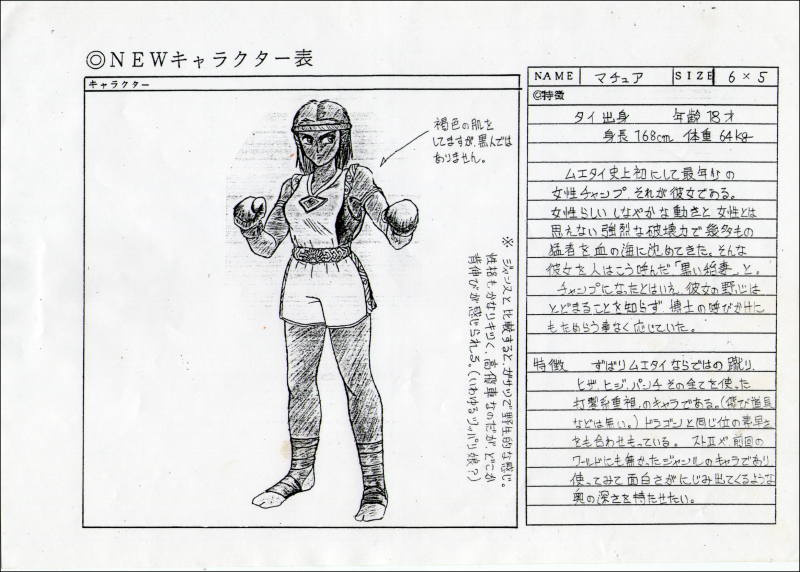 ◎NEWキャラクター表
キャラクター
褐色の肌を
してますが、黒人では
ありません。
※ジャンヌと比較するとガサツで野生的な感じ。
性格もかなりキツく、高飛車なのだがどこか
背伸びが感じられる。(いわゆるツッパリ娘?)
NAME マチュア SIZE 6×5
◎特徴
タイ出身 年齢18才
身長168cm 体重64kg
ムエタイ史上初にして最年少の
女性チャンプ それが彼女である。
女性らしいしなやかな動きと 女性とは
思えない強烈な破壊力で幾多もの
猛者を血の海に沈めてきた。そんな
彼女を人はこう呼んだ「黒い稲妻」と。
チャンプになったとはいえ、彼女の野心は
とどまることを知らず 博士の呼びかけに
もためらう事なく応じていた。
特徴 ずばりムエタイならではの蹴り、
ヒザ、ヒジ、パンチ その全てを使った
打撃系重視のキャラである。(飛び道具
などは無い。)ドラゴンと同じ位の素早さ
をも合わせもっている。 ストⅡや前回の
ワールドにも無かったジャンルのキャラであり
使ってみて面白さがにじみ出てくるような
奥の深さを持たせたい。